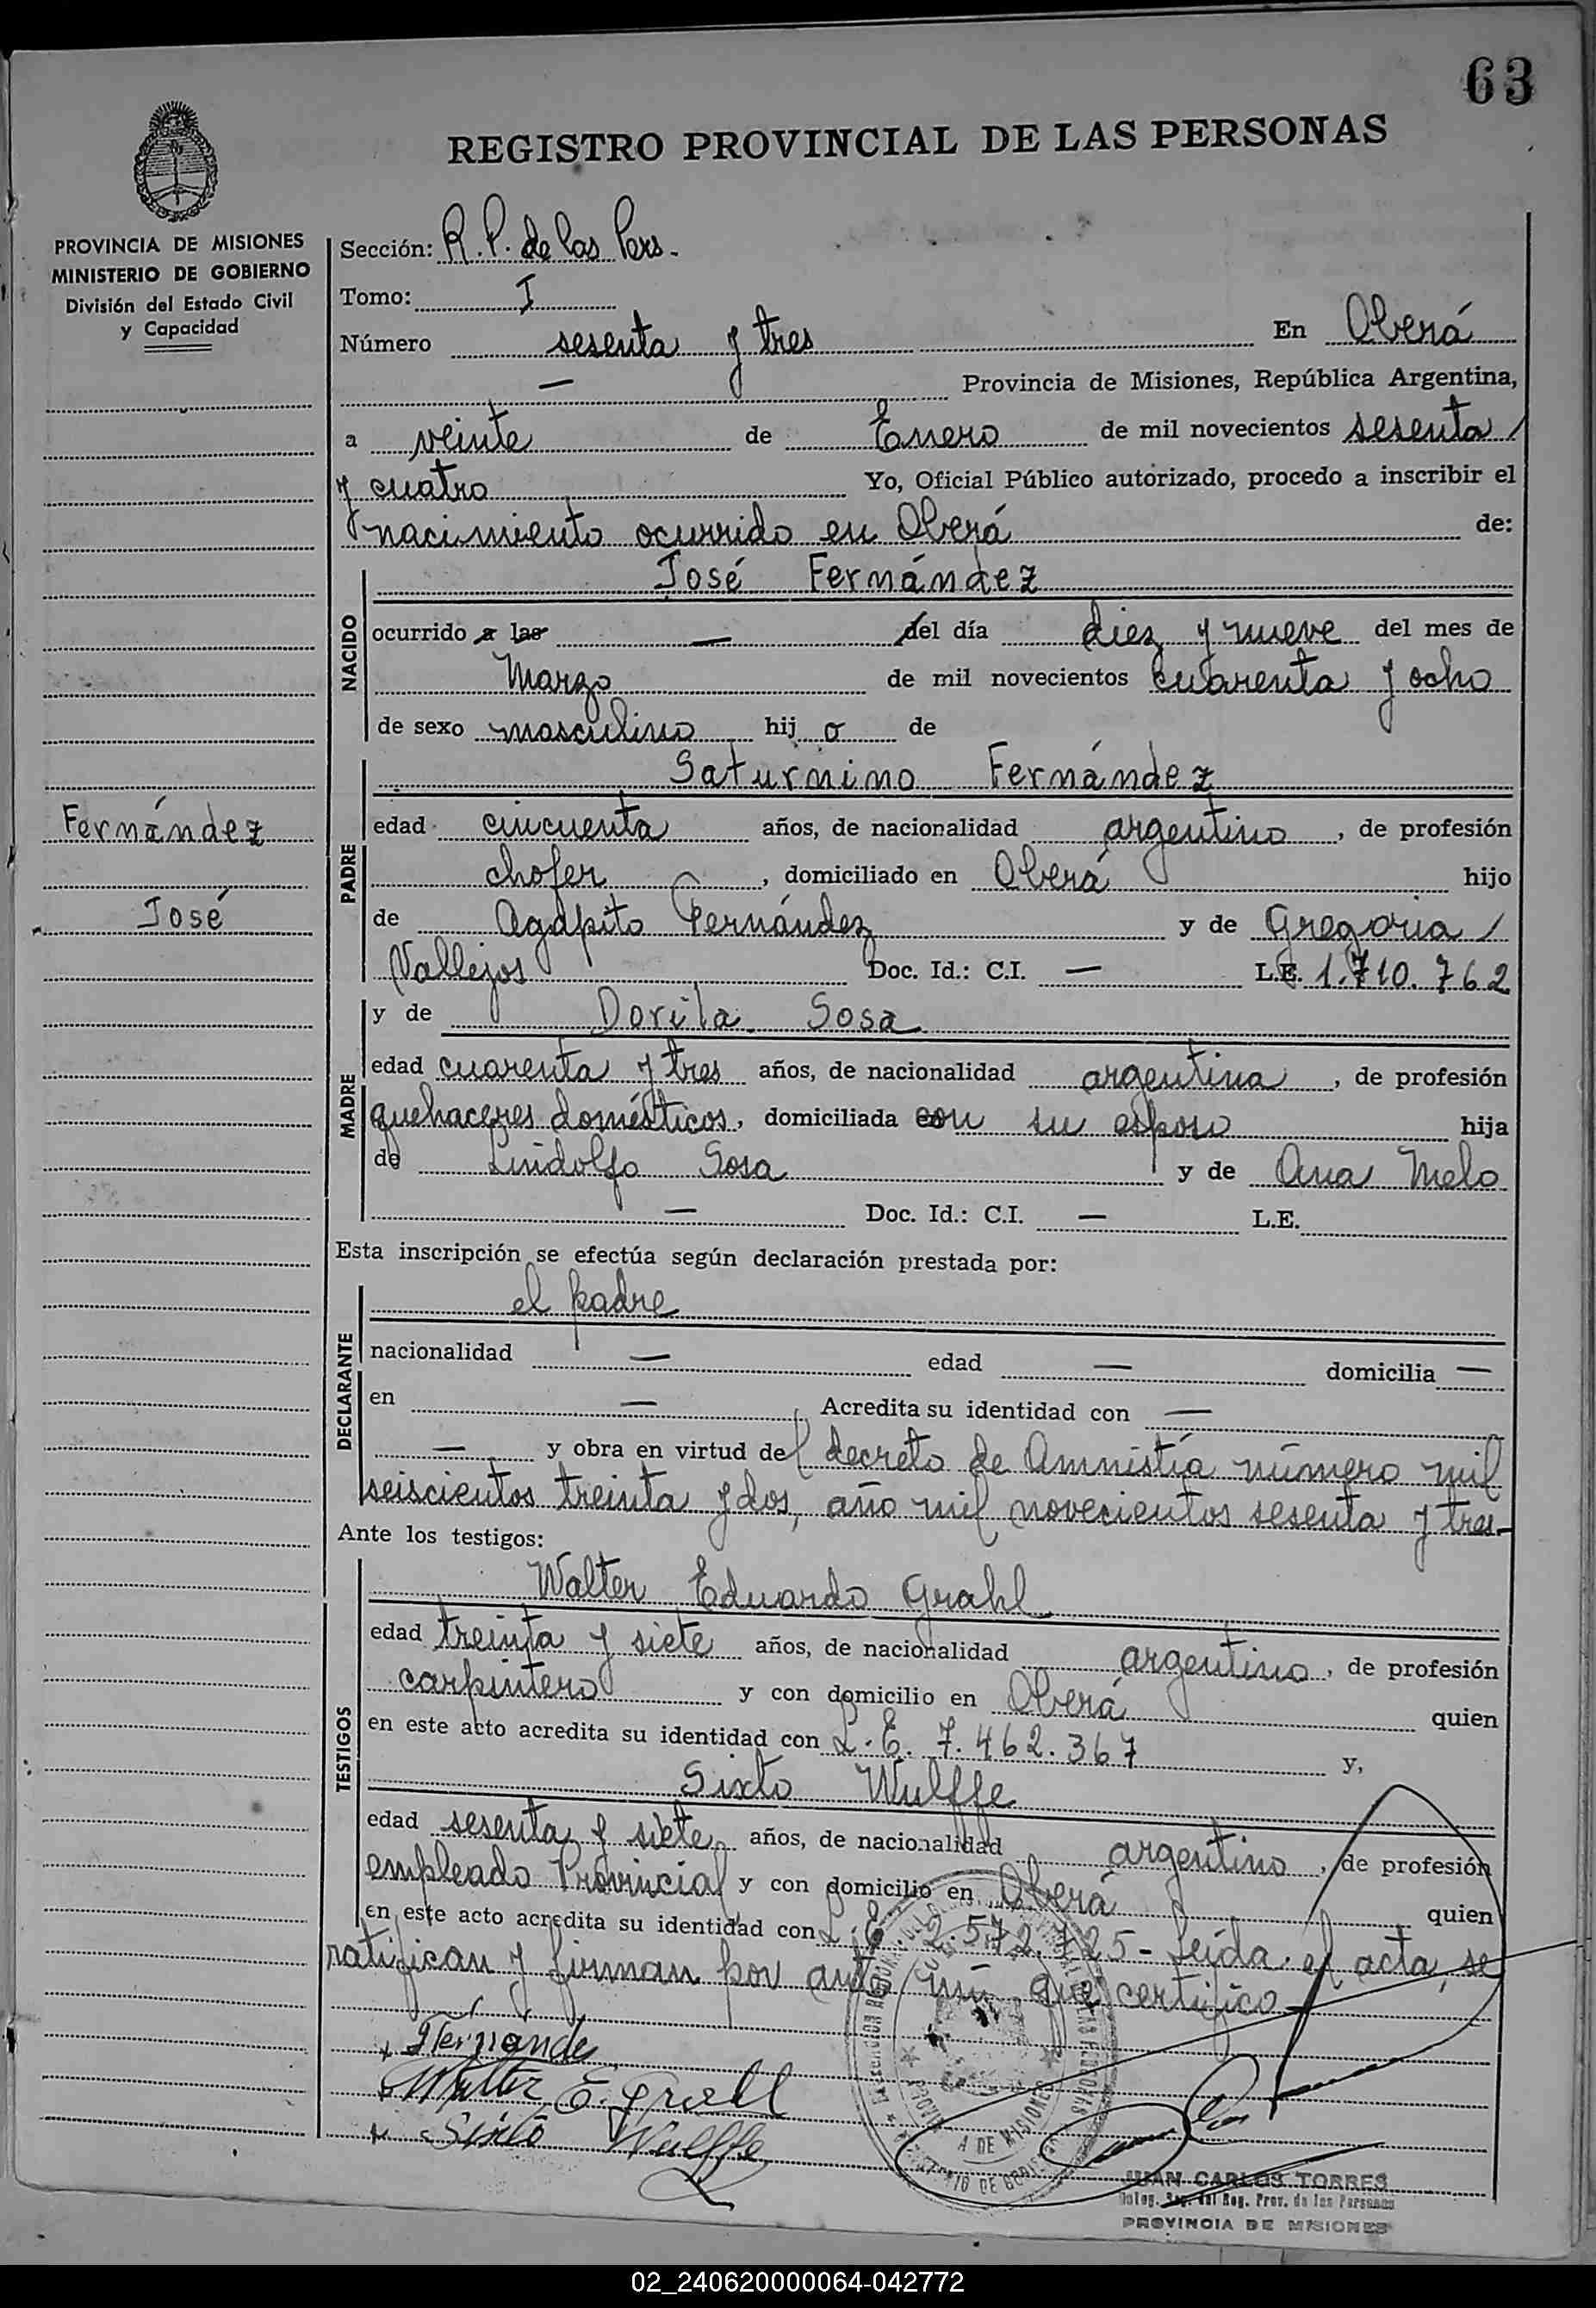 63
REGISTRO PROVINCIAL DE LAS PERSONAS
PROVINCIA DE MISIONES
MINISTERIO DE GOBIERNO
División del Estado Civil
y Capacidad
Sección: R. P. de las Pers.
Tomo: I
Número sesenta y tres En Oberá
— Provincia de Misiones, República Argentina,
a veinte de Enero de mil novecientos sesenta /
y cuatro Yo, Oficial Público autorizado, procedo a inscribir el
nacimiento ocurrido en Oberá de:
NACIDO
José Fernández
ocurrido a las — del día diez y nueve del mes de
Marzo de mil novecientos cuarenta y ocho
de sexo masculino hij o de
Fernández
José
PADRE
Saturnino Fernández
edad cincuenta años, de nacionalidad argentino, de profesión
chofer, domiciliado en Oberá hijo
de Agapito Fernández y de Gregoria /
Vallejos Doc. Id.: C.I. — L.E. 1.710.762
MADRE
y de Dorila Sosa
edad cuarenta y tres años, de nacionalidad argentina, de profesión
quehaceres domésticos, domiciliada con su esposo hija
de Lindolfo Sosa y de Ana Melo
— Doc. Id.: C.I. — L.E.
Esta inscripción se efectúa según declaración prestada por:
DECLARANTE
el padre
nacionalidad — edad — domicilia —
en — Acredita su identidad con —
— y obra en virtud del decreto de Amnistía número mil
seiscientos treinta y dos, año mil novecientos sesenta y tres-
Ante los testigos:
TESTIGOS
Walter Eduardo Grahl
edad treinta y siete años, de nacionalidad argentino, de profesión
carpintero y con domicilio en Oberá quien
en este acto acredita su identidad con L.E. 7.462.367 y,
Sixto Wulffe
edad sesenta y siete años, de nacionalidad argentino, de profesión
empleado Provincial y con domicilio en Oberá quien
en este acto acredita su identidad con L.E. 2.572.725- Leída el acta, se
ratifican y firman por ante mí que certifico
Walter E. Grahl
Sixto Wulffe
JUAN CARLOS TORRES
Reg. Prov. de las Personas
PROVINCIA DE MISIONES
02_240620000064-042772